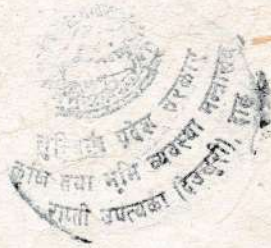 लुम्बिनी प्रदेश सरकार
भूमि व्यवस्था
कृषि तथा भूमि व्यवस्था मन्त्रालय
राप्ती उपत्यका (देउखुरी), दाङ